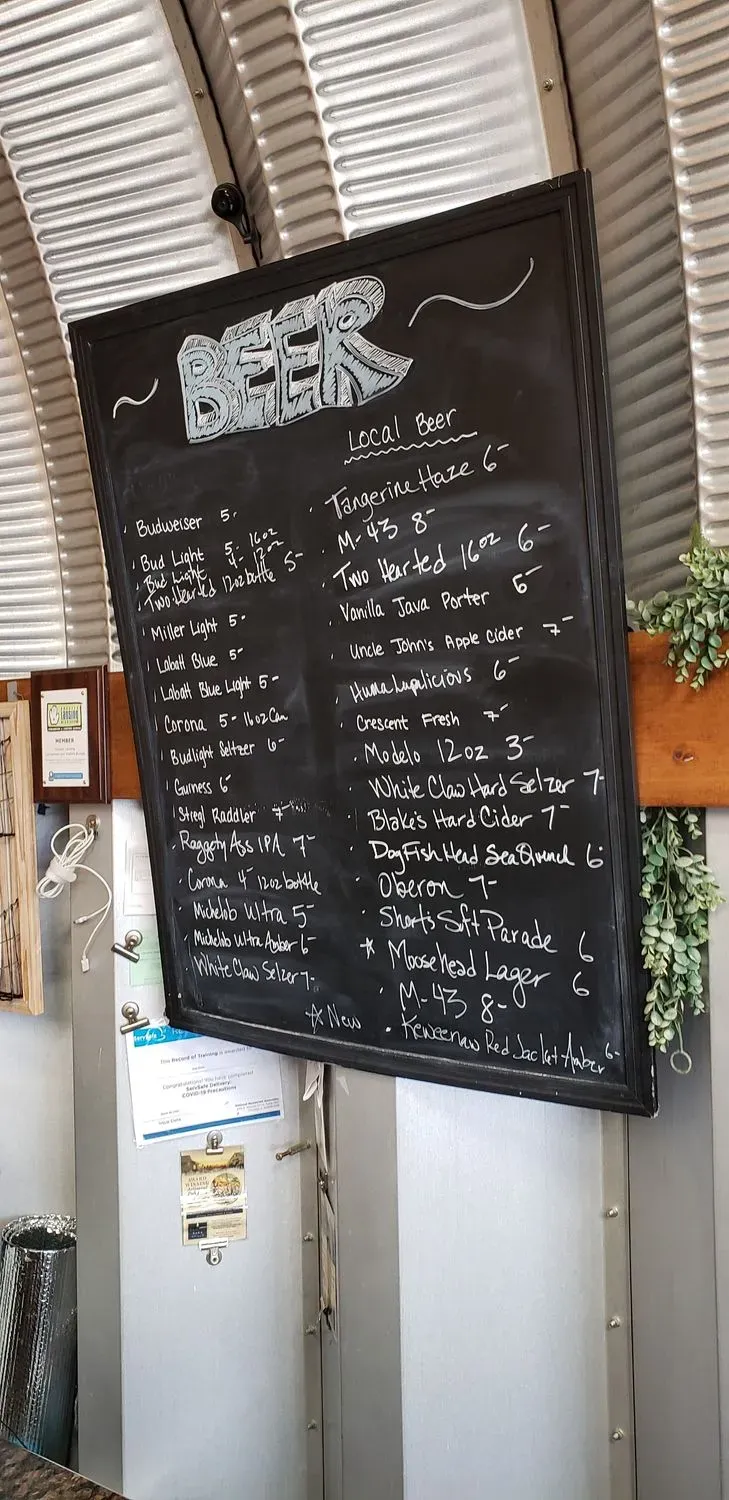 BEER
Budweiser 5-
Bud Light 5- 16oz
Bud Light 4- 12oz
Two Hearted 12oz bottle 5-
Miller Light 5-
Labatt Blue 5-
Labatt Blue Light 5-
Corona 5- 16oz Can
Budlight Seltzer 6-
Guiness 6-
Stiegl Raddler 7-
Raggety Ass IPA 7-
Corona 4- 12oz bottle
Michelob Ultra 5-
Michelob Ultra Amber 6-
White Claw Selzer 7-
☆ New
Local Beer
Tangerine Haze 6-
M-43 8-
Two Hearted 16oz 6-
Vanilla Java Porter 5-
Uncle John's Apple Cider 7-
Huma Lupalicious 6-
Crescent Fresh 7-
Modelo 12oz 3-
White Claw Hard Selzer 7-
Blake's Hard Cider 7-
DogFish Head Sea Quench 6-
Oberon 7-
Short's Soft Parade 6
☆ Moosehead Lager 6
M-43 8-
Keweenaw Red Jacket Amber 6-
Lansing
MEMBER
ServSafe
This Record of Training is awarded to
Congratulations! You have completed
ServSafe Delivery:
COVID-19 Precautions
AWARD
WINNING